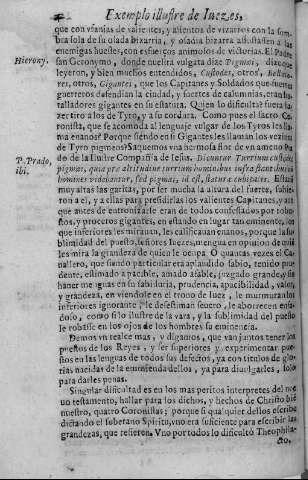 Exemplo illustre de Iuezes,
que con vsanias de valientes, y alientos de vizarros con la som-
bra sola de su osada bizarria, y osadia bizarra assustassen a las
enemigas huestes, con esfuerços animolos de victorias. El Padre
Hierony.
san Geronymo, donde nuestra vulgata dize Pigmei, dize que
leyeron, y bien muchos entendidos, Custodes, otros, Bella-
tores, otros, Gigantei, que los Capitanes y Soldados que fuertes
guerreros defendian la ciudad, y fuerças de calumnias, eran ta-
lladores gigantes en su estatura. Quien lo dificulta? fuera ha-
zer tiro a los de Tyro, y a su cordura. Como pues el sacro Co-
ronista, se acomoda al lenguaje vulgar de los Tyros les lla-
ma enanos? Porque siendo en si Gigantes les llaman los vezinos
de Tyro pigmeos? Saquemos vna hermosa fine de vn ameno Pra-
P. Prado, ibi.
do de la ilustre Compañia de Iesus. Dicuntur Turrium custodes
pigmæi, quia præ altitudine turrium hominibus infra stantibus
homines videbantur, sed pigmæi, id est, statura cubitales. Estauã
muy altas las garitas, por ser mucha la altura del fuerte, subie-
ron a el, y a ellas para presidirlas los valientes Capitanes, y aun-
que antes de entronizarse eran de todos confessados por robus-
tos, y proceros gigantes, en estando en lugar tan eminente, los
que inferiores les mirauan, les calificauan enanos, porque la su-
blimidad del puesto, señores Iuezes, mengua en opinion de quiẽ
les mira la grandeza de quien le ocupa. O quantas vezes el Ca-
uallero, que siendo particular era aplaudido sabio, tenido pru-
dente, estimado apacible, amado afable, juzgado grande, y sin
haner menguas en su sabiduria, prudencia, apacibilidad, valor,
y grandeza, en viendole en el trono de luez, le murmuran los
inferiores ignorante? le desestiman seuero, le aborrecen enfa-
doso, como si lo ilustre de la vara, y la sublimidad del puesto
le robasse en los ojos de los hombres su eminencia.
Demos vn realce mas, y digamos, que van juntos tener los
puestos de los Reyes, y ser superiores y experimentar pues-
tos en las lenguas de todos sus defectos, ya con titulos de glo-
rias nacidas de la enmienda dellos, ya para diuulgarles, solo
para darles penas.
Singular dificultad es en los mas peritos interpretes del nue-
uo testamento, hallar para los dichos, y hechos de Christo bié
nuestro, quatro Coronistas; porque si qualquier dellos escribe
dictando el soberano Spiritu, vno era suficiente para escribir las
grandezas, que refieren. Vno por todos lo dificultò Theophila-
cto,